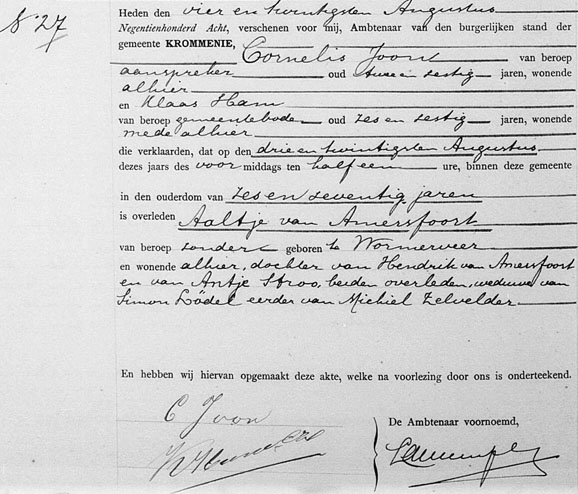 N° 27
Heden den vier en twintigsten Augustus
Negentienhonderd Acht, verschenen voor mij, Ambtenaar van den burgerlijken stand der
gemeente KROMMENIE, Cornelis Joon van beroep
aanspreker oud twee en sestig jaren, wonende
alhier
en Klaas Ham
van beroep gemeentebode oud zes en sestig jaren, wonende
mede alhier
die verklaarden, dat op den drie en twintigsten Augustus
dezes jaars des voor middags ten half een ure, binnen deze gemeente
in den ouderdom van zes en seventig jaren
is overleden Aaltje van Amersfoort
van beroep zonder geboren te Wormerveer
en wonende alhier, dochter van Hendrik van Amersfoort
en van Antje Stroo, beiden overleden, weduwe van
Simon Lödel eerder van Michiel Zelvelder
En hebben wij hiervan opgemaakt deze akte, welke na voorlezing door ons is onderteekend.
C Joon
De Ambtenaar voornoemd,